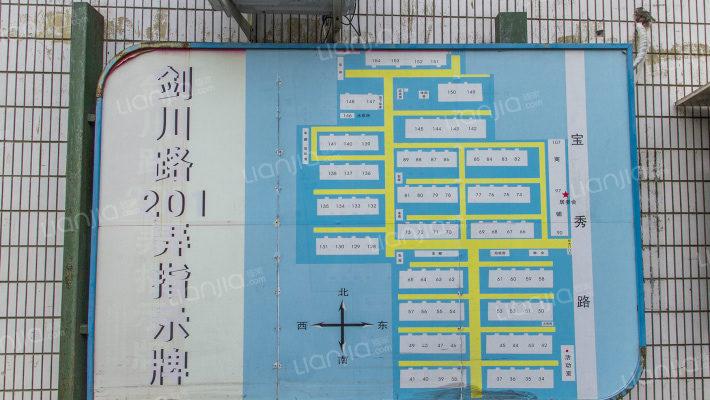 剑川路
201
弄指示牌
154 153 152 151
148 147
150 149
146
145 144 143 142
141 140 139
89 88 87 86
85 84 83 82
107
商
138 137 136
97
81 80 79 78
77 76 75 74
居委会
铺
135 134 133 132
90
73 72 71 70
69 68 67 66
131 130 129 128
宝秀路
65 64 63 62
61 60 59 58
57 56 55 54
53 52 51 50
49 48 47 46
45 44 43 42
活动室
41 40 39 38
37 36 35 34
北
西 东
南
lianjia 链家